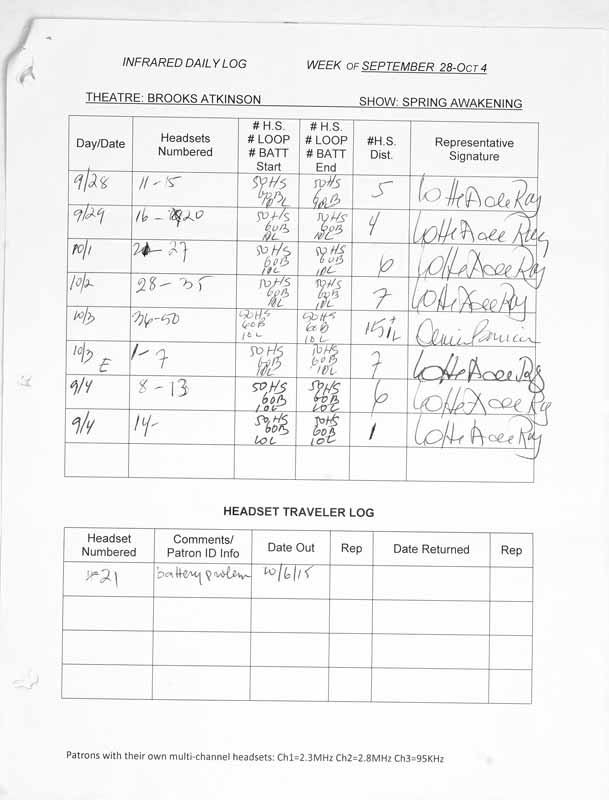 INFRARED DAILY LOG WEEK OF SEPTEMBER 28-OCT 4
THEATRE: BROOKS ATKINSON SHOW: SPRING AWAKENING
Day/Date Headsets Numbered # H.S. # LOOP # BATT Start # H.S. # LOOP # BATT End #H.S. Dist. Representative Signature
9/28 11-15 50HS 60B 10L 50HS 60B 10L 5
9/29 16-20 50HS 60B 10L 50HS 60B 10L 4
10/1 27 50HS 60B 10L 50HS 60B 10L 6
10/2 28-35 50HS 60B 10L 50HS 60B 10L 7
10/3 36-50 50HS 60B 10L 50HS 60B 10L 15+ 1L
10/3 E 1-7 50HS 60B 10L 50HS 60B 10L 7
9/4 8-13 50HS 60B 10L 50HS 60B 10L 6
9/4 14- 50HS 60B 10L 50HS 60B 10L 1
HEADSET TRAVELER LOG
Headset Numbered Comments/ Patron ID Info Date Out Rep Date Returned Rep
#21 battery problem 10/6/15
Patrons with their own multi-channel headsets: Ch1=2.3MHz Ch2=2.8MHz Ch3=95KHz